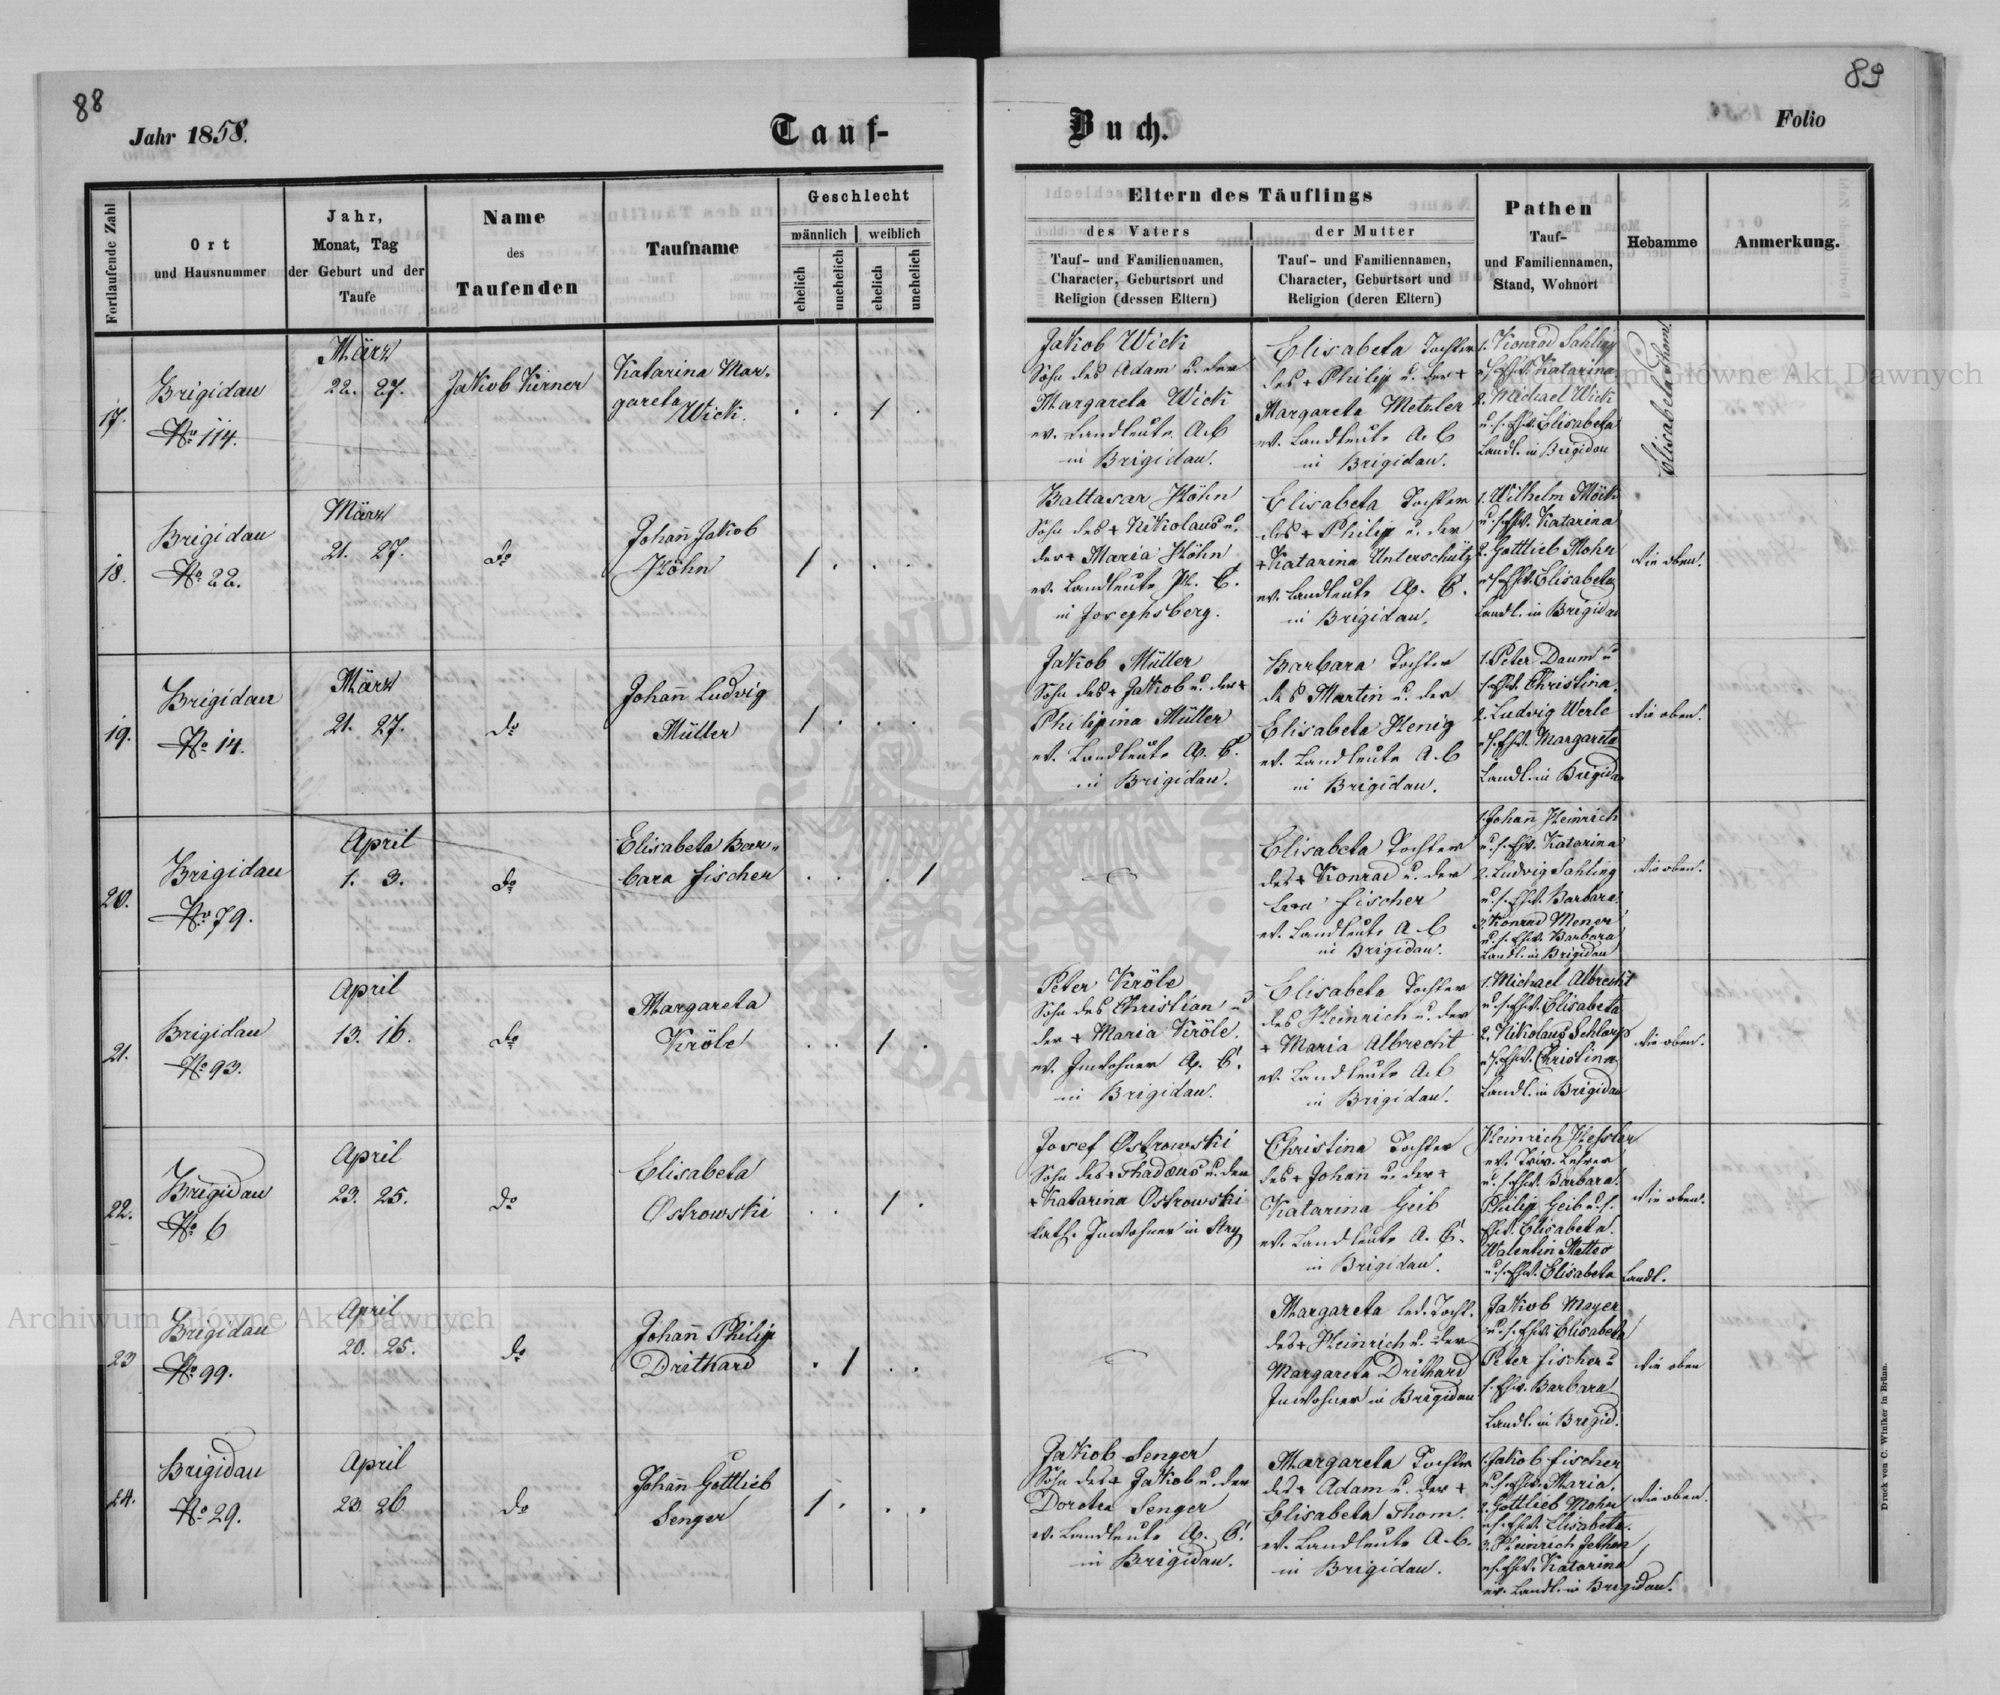 88
Jahr 1858.
Tauf-
Fortlaufende Zahl
Ort
und Hausnummer
Jahr,
Monat, Tag
der Geburt und der
Taufe
Name
des
Taufenden
Taufname
Geschlecht
männlich
weiblich
ehelich
unehelich
ehelich
unehelich
89
Buch.
Folio
Eltern des Täuflings
des Vaters
der Mutter
Tauf- und Familiennamen,
Character, Geburtsort und
Religion (dessen Eltern)
Tauf- und Familiennamen,
Character, Geburtsort und
Religion (deren Eltern)
Pathen
Tauf-
und Familiennamen,
Stand, Wohnort
Hebamme
Anmerkung.
17.
Brigidau
No 114.
März
22. 27.
Jakob Kirner
Katarina Mar-
gareta
Wick.
. . 1 .
Jakob Wick
Sohn des Adam u. der
Margareta Wick
ev. Landleute A. C
in Brigidau.
Elisabeta Tochter
des + Philip u. der +
Margareta Metzler
ev. Landleute A. C
in Brigidau.
1. Konrad Sahling
u. s. Ehw. Katarina
2. Michael Wick
u. s. Ehw. Elisabeta
Landl. in Brigidau
Elisabeta Thom.
18.
Brigidau
No 22.
März
21. 27.
do
Johann Jakob
Höhn
1 . . .
Baltasar Höhn
Sohn des + Nikolaus u.
der + Maria Höhn
ev. Landleute H. C.
in Josephsberg.
Elisabeta Tochter
des + Philip u. der
+ Katarina Unterschütz
ev. Landleute A. C.
in Brigidau.
1. Wilhelm Möck
u. s. Ehw. Katarina
2. Gottlieb Mohr
u. s. Ehw. Elisabeta
Landl. in Brigidau
wie oben.
19.
Brigidau
No 14.
März
21. 27.
do
Johann Ludvig
Müller
1 . . .
Jakob Müller
Sohn des + Jakob u. der +
Philipina Müller
ev. Landleute A. C.
in Brigidau.
Barbara Tochter
des Martin u. der
Elisabeta Henig
ev. Landleute A. C
in Brigidau.
1. Peter Daum u
s. Ehw. Christina,
2. Ludvig Werle
u. s. Ehw. Margareta
Landl. in Brigidau
wie oben.
20.
Brigidau
No 79.
April
1. 3.
do
Elisabeta Bar-
bara Fischer
. . . 1
Elisabeta Tochter
des + Konrad u. der
Fischer
ev. Landleute A C
in Brigidau.
1. Johann Heinrich
u. s. Ehw. Katarina
2. Ludvig Sahling
u. s. Ehw. Barbara
3. Konrad Mener
u. s. Ehw. Barbara
Landl. in Brigidau
wie oben.
21.
Brigidau
No 93.
April
13. 16.
do
Margareta
Kröle
. . 1 .
Peter Kröle
Sohn des Christian u
der + Maria Kröle.
ev. Inwohner A. C.
in Brigidau.
Elisabeta Tochter
des Heinrich u. der
+ Maria Albrecht
ev. Landleute A. C
in Brigidau.
1. Michael Albrecht
u. s. Ehw. Elisabeta
2. Nikolaus Schlarp
u. s. Ehw. Christina
Landl. in Brigidau
wie oben.
22.
Brigidau
No 6
April
23. 25.
do
Elisabeta
Ostrowski
. . 1 .
Josef Ostrowski
Sohn des + Thadäus u. der
+ Katarina Ostrowski
kath. Inwohner in Stry
Christina Tochter
des + Johann u. der +
Katarina Geib
ev. Landleute A. C.
in Brigidau.
Heinrich Hessler
ev. Lehrer
u. s. Ehw. Barbara.
Philip Geib u. s.
Ehw. Elisabeta.
Walentin Matteo
u. s. Ehw. Elisabeta Landl.
wie oben.
23
Brigidau
No 99.
April
20. 25.
do
Johann Philip
Drithard
. 1 . .
Margareta led. Tocht.
des + Heinrich u. der
Margareta Drithard
Inwohner in Brigidau
Jakob Mayer
u. s. Ehw. Elisabeta
Peter Fischer u
s. Ehw. Barbara
Landl. in Brigid.
wie oben
24.
Brigidau
No 29.
April
23 26
do
Johann Gottlieb
Senger
1 . . .
Jakob Senger
Sohn des + Jakob u. der
Dorotea Senger
ev. Landleute A. C.
in Brigidau.
Margareta Tochter
des + Adam u. der +
Elisabeta Thom.
ev. Landleute A. C.
in Brigidau.
1. Jakob Fischer
u. s. Ehw. Maria.
2. Gottlieb Mohr
u. s. Ehw. Elisabeta.
3. Heinrich Jethon
u. s. Ehw. Katarina
ev. Landl. in Brigidau.
wie oben.
Druck von C. Winiker in Brünn.
Archiwum Główne Akt Dawnych
Archiwum Główne Akt Dawnych
ARCHIWUM GŁÓWNE AKT DAWNYCH